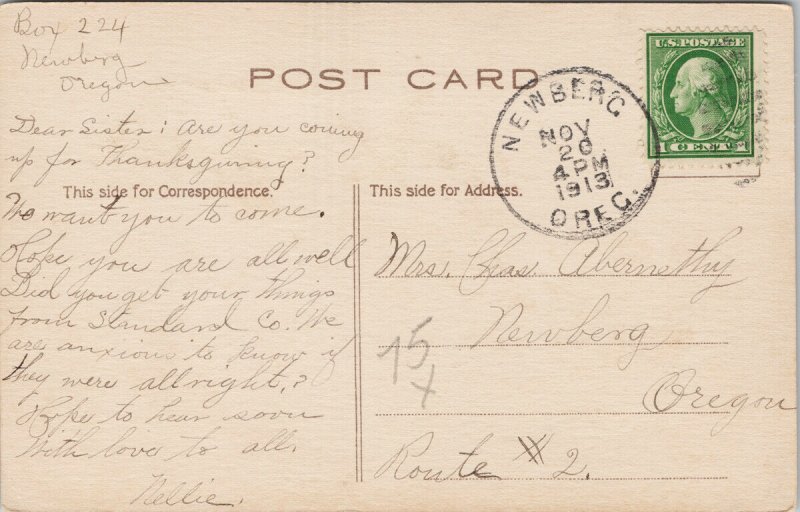 Box 224
Newberg
Oregon
POST CARD
U.S. POSTAGE
1 CENT 1
NEWBERG
NOV
20
4 PM
1913
OREG.
Dear Sister: Are you coming
up for Thanksgiving?
This side for Correspondence.
We want you to come.
Hope you are all well
Did you get your things
from Standard Co. We
are anxious to know if
they were allright.?
Hope to hear soon
With love to all.
Nellie.
This side for Address.
Mrs. Chas. Abernethy
Newberg
Oregon
Route # 2.
15
x